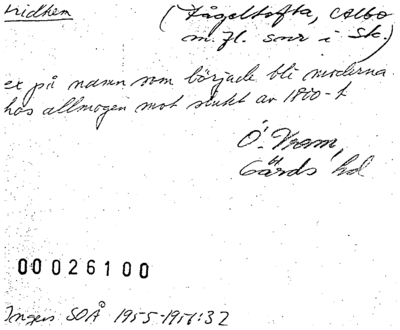 Fridhem
(Fågeltofta, Albo
m.fl. snr i Sk.)
ex på namn som började bli moderna
hos allmogen mot slutet av 1800-t
Ö. Vram,
Gärds hd
00026100
Ingers SOÅ 1955-1956:32